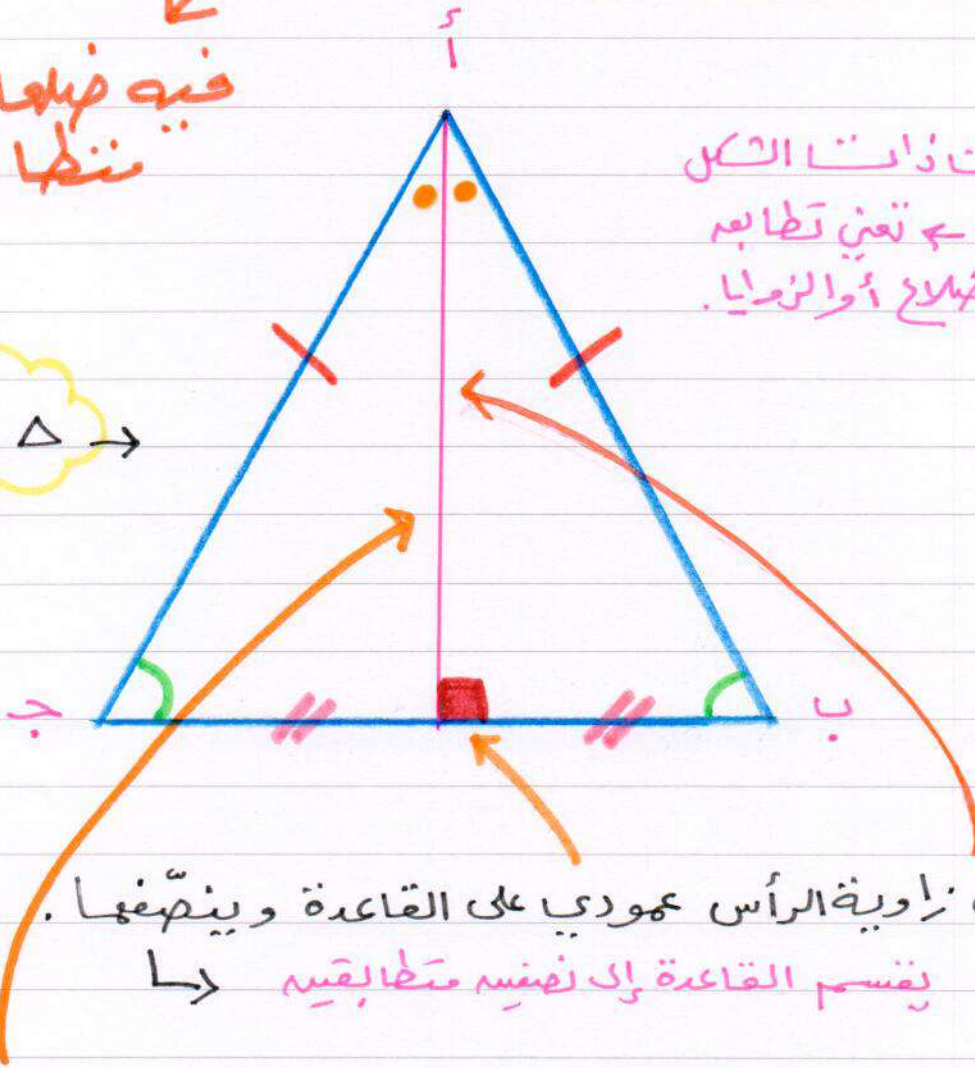 أ
فيه ضلعا
متطا
ذات الشكل
← تعني تطابق
أو الزوايا.
△ →
جـ
ب
زاوية الرأس عمودي على القاعدة وينصّفها.
يقسم القاعدة إلى نصفين متطابقين